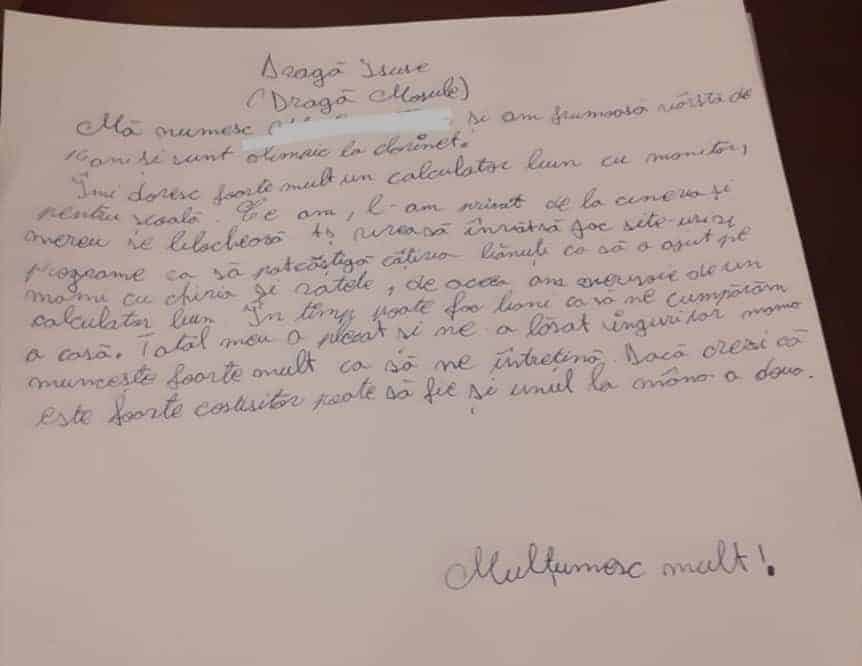 Dragă Isuse
(Dragă Moșule)
Mă numesc și am frumoasă vârsta de
ani și sunt olimpic la clarinet.
Îmi doresc foarte mult un calculator bun cu monitor,
pentru școală. Ce am, l-am primit de la cineva și
mereu se blochează Aș vrea să învăț să fac site-uri și
programe ca să pot câștiga câțiva bănuți ca să o ajut pe
mami cu chiria și ratele, de aceea am nevoie de un
calculator bun. În timp poate fac bani ca să ne cumpărăm
o casă. Tatăl meu a plecat și ne-a lăsat singuri iar mama
muncește foarte mult ca să ne întrețină. Dacă crezi că
este foarte costisitor poate să fie și unul la mâna a doua.
Mulțumesc mult!